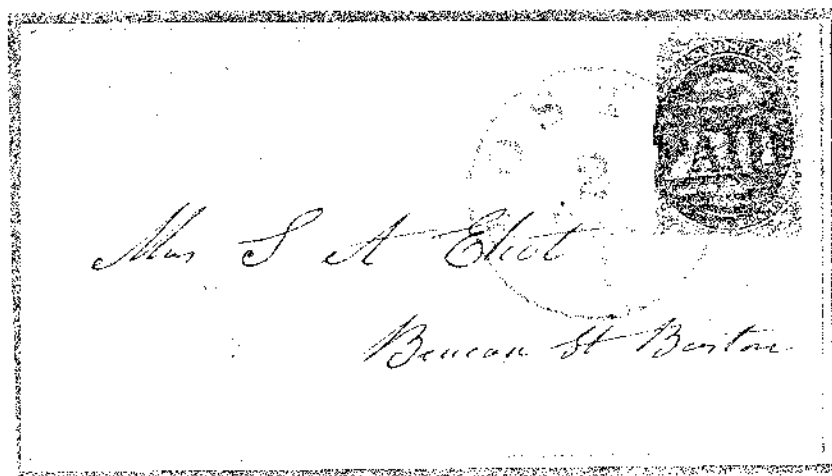 PAID
Mrs S A Eliot
Beacon St Boston